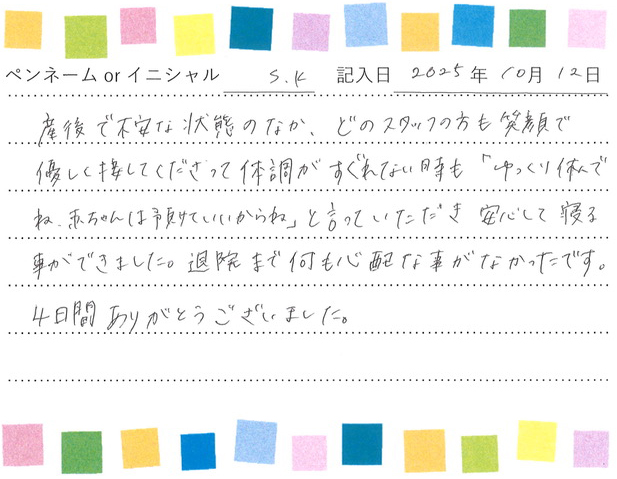 ペンネーム or イニシャル S.K 記入日 2025年 10月 12日
産後で不安な状態のなか、どのスタッフの方も笑顔で
優しく接してくださって体調がすぐれない時も「ゆっくり休んで
ね、赤ちゃんは預けていいからね」と言っていただき 安心して寝る
事ができました。退院まで何も心配な事がなかったです。
4日間ありがとうございました。